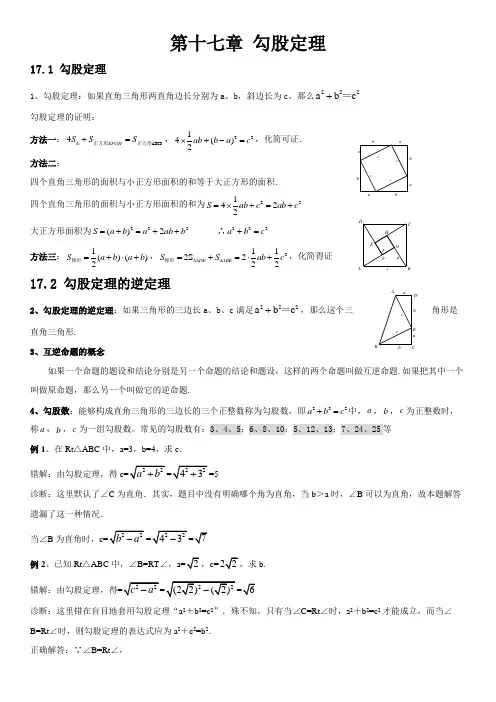 第十七章 勾股定理
17.1 勾股定理
1、勾股定理：如果直角三角形两直角边长分别为a、b，斜边长为c，那么a²＋b²＝c²
勾股定理的证明：
方法一：4S△ + S正方形EFGH = S正方形ABCD，4×½ab + (b−a)² = c²，化简可证．
方法二：
四个直角三角形的面积与小正方形面积的和等于大正方形的面积．
四个直角三角形的面积与小正方形面积的和为S = 4×½ab + c² = 2ab + c²
大正方形面积为S = (a+b)² = a² + 2ab + b² ∴a² + b² = c²
方法三：S梯形 = ½(a+b)·(a+b)，S梯形 = 2S△ADE + S△ABE = 2·½ab + ½c²，化简得证
17.2 勾股定理的逆定理
2、勾股定理的逆定理：如果三角形的三边长a、b、c满足a²＋b²＝c²，那么这个三 角形是
直角三角形.
3、互逆命题的概念
如果一个命题的题设和结论分别是另一个命题的结论和题设，这样的两个命题叫做互逆命题.如果把其中一个
叫做原命题，那么另一个叫做它的逆命题.
4、勾股数：能够构成直角三角形的三边长的三个正整数称为勾股数，即a² + b² = c²中，a，b，c为正整数时，
称a，b，c为一组勾股数。常见的勾股数有：3、4、5；6、8、10；5、12、13；7、24、25等
例1、在Rt△ABC中，a=3，b=4，求c．
错解：由勾股定理，得c=√(a²+b²)=√(4²+3²)=5
诊断：这里默认了∠C为直角．其实，题目中没有明确哪个角为直角，当b＞a时，∠B可以为直角，故本题解答
遗漏了这一种情况．
当∠B为直角时，c=√(b²−a²)=√(4²−3²)=√7
例2、已知Rt△ABC中，∠B=RT∠，a=√2，c=2√2，求b.
错解：由勾股定理，得=√(c²−a²)=√((2√2)²−(√2)²)=√6
诊断：这里错在盲目地套用勾股定理“a²＋b²=c²”．殊不知，只有当∠C=Rt∠时，a²＋b²=c²才能成立，而当∠
B=Rt∠时，则勾股定理的表达式应为a²＋c²=b²．
正确解答：∵∠B=Rt∠，